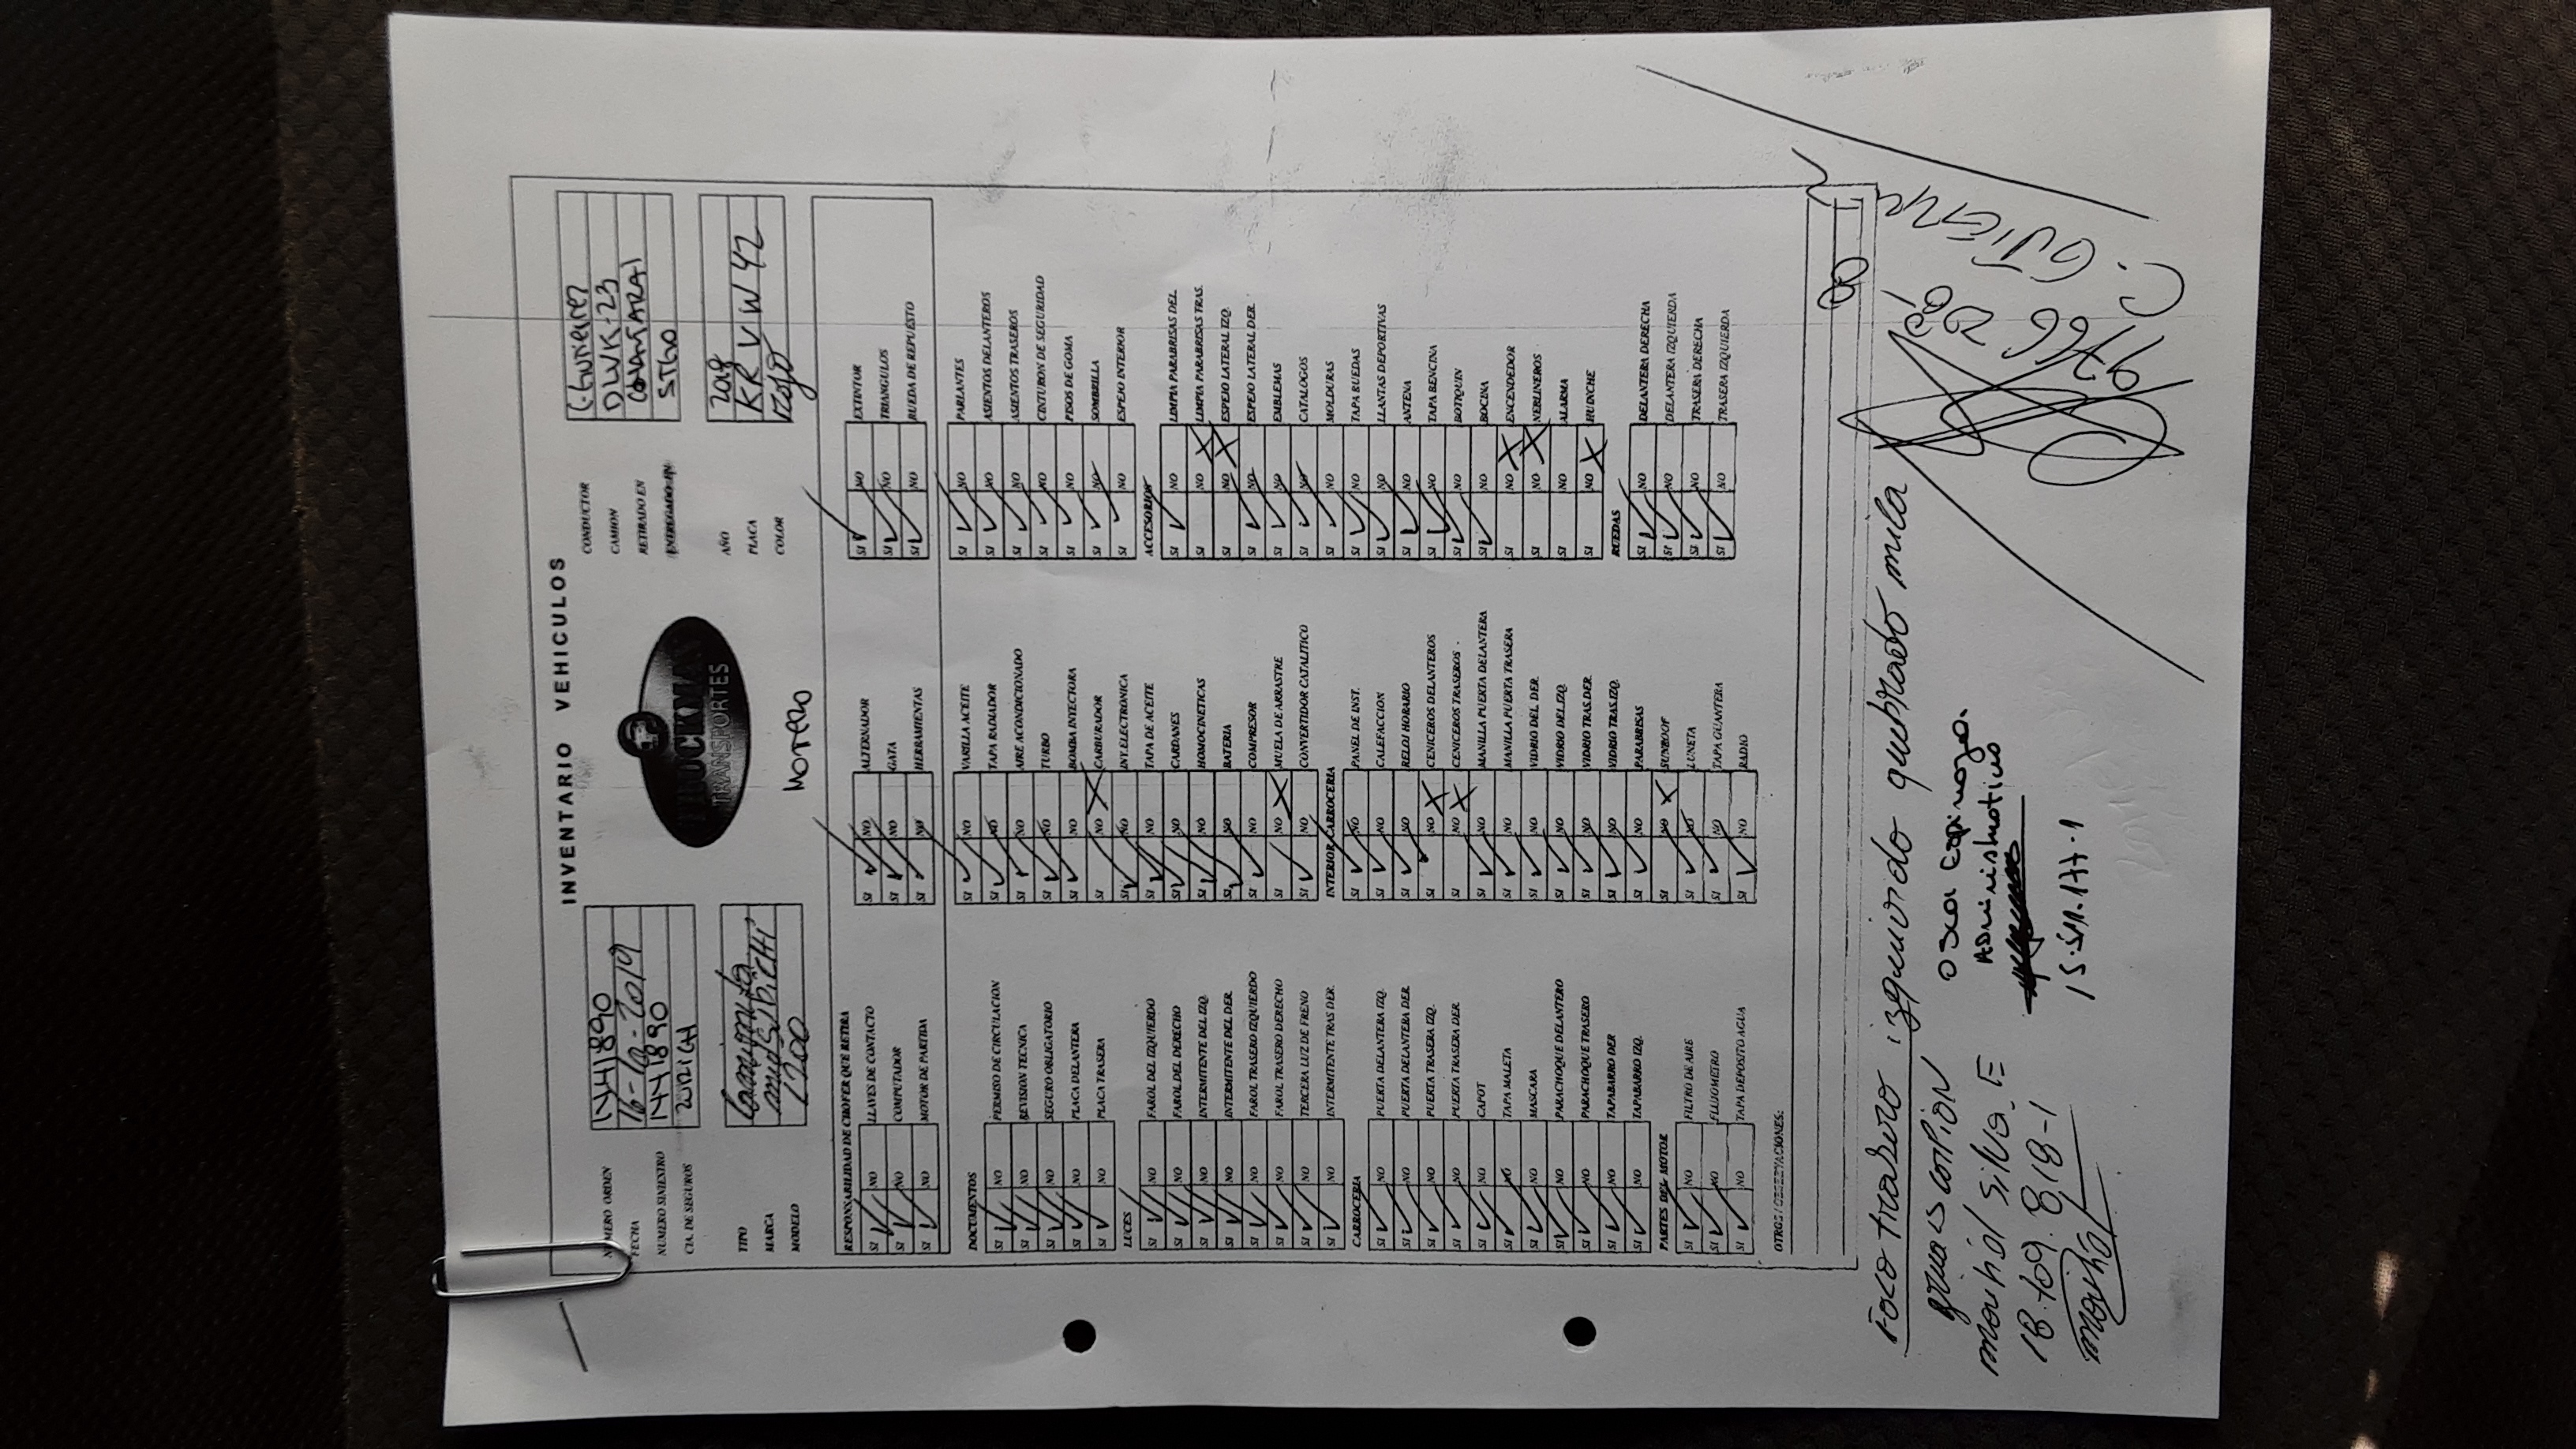 INVENTARIO VEHICULOS
NUMERO ORDEN 1441890
FECHA 16-12-2019
NUMERO SINIESTRO 1441890
CIA. DE SEGUROS ZURICH
TIPO Camioneta
MARCA
MODELO L200
TRUCKMA
TRANSPORTES
Motero
CONDUCTOR
CAMION DLWK-23
RETIRADO EN CHAÑARAL
ENTREGADO EN STGO
AÑO 2018
PLACA KR VW 42
COLOR ROJO
RESPONSABILIDAD DE CHOFER QUE RETIRA
SI NO LLAVES DE CONTACTO
SI NO COMPUTADOR
SI NO MOTOR DE PARTIDA
SI NO ALTERNADOR
SI NO GATA
SI NO HERRAMIENTAS
SI NO EXTINTOR
SI NO TRIANGULOS
SI NO RUEDA DE REPUESTO
DOCUMENTOS
SI NO PERMISO DE CIRCULACION
SI NO REVISION TECNICA
SI NO SEGURO OBLIGATORIO
SI NO PLACA DELANTERA
SI NO PLACA TRASERA
LUCES
SI NO FAROL DEL IZQUIERDO
SI NO FAROL DEL DERECHO
SI NO INTERMITENTE DEL IZQ.
SI NO INTERMITENTE DEL DER.
SI NO FAROL TRASERO IZQUIERDO
SI NO FAROL TRASERO DERECHO
SI NO TERCERA LUZ DE FRENO
SI NO INTERMITENTE TRAS DER.
CARROCERIA
SI NO PUERTA DELANTERA IZQ.
SI NO PUERTA DELANTERA DER.
SI NO PUERTA TRASERA IZQ.
SI NO PUERTA TRASERA DER.
SI NO CAPOT
SI NO TAPA MALETA
SI NO MASCARA
SI NO PARACHOQUE DELANTERO
SI NO PARACHOQUE TRASERO
SI NO TAPABARRO DER
SI NO TAPABARRO IZQ.
PARTES DEL MOTOR
SI NO FILTRO DE AIRE
SI NO FLUJOMETRO
SI NO TAPA DEPOSITO AGUA
SI NO VARILLA ACEITE
SI NO TAPA RADIADOR
SI NO AIRE ACONDICIONADO
SI NO TURBO
SI NO BOMBA INYECTORA
SI NO X CARBURADOR
SI NO INY. ELECTRONICA
SI NO TAPA DE ACEITE
SI NO CARDANES
SI NO HOMOCINETICAS
SI NO BATERIA
SI NO COMPRESOR
SI NO X MUELA DE ARRASTRE
SI NO CONVERTIDOR CATALITICO
INTERIOR CARROCERIA
SI NO PANEL DE INST.
SI NO CALEFACCION
SI NO RELOJ HORARIO
SI NO X CENICEROS DELANTEROS
SI NO X CENICEROS TRASEROS
SI NO MANILLA PUERTA DELANTERA
SI NO MANILLA PUERTA TRASERA
SI NO VIDRIO DEL DER.
SI NO VIDRIO DEL IZQ.
SI NO VIDRIO TRAS.DER.
SI NO VIDRIO TRAS.IZQ.
SI NO PARABRISAS
SI NO X SUNROOF
SI NO LUNETA
SI NO TAPA GUANTERA
SI NO RADIO
SI NO PARLANTES
SI NO ASIENTOS DELANTEROS
SI NO ASIENTOS TRASEROS
SI NO CINTURON DE SEGURIDAD
SI NO PISOS DE GOMA
SI NO SOMBRILLA
SI NO ESPEJO INTERIOR
ACCESORIOS
SI NO LIMPIA PARABRISAS DEL.
SI NO X LIMPIA PARABRISAS TRAS.
SI NO X ESPEJO LATERAL IZQ.
SI NO ESPEJO LATERAL DER.
SI NO EMBLEMAS
SI NO CATALOGOS
SI NO MOLDURAS
SI NO TAPA RUEDAS
SI NO LLANTAS DEPORTIVAS
SI NO ANTENA
SI NO TAPA BENCINA
SI NO BOTIQUIN
SI NO BOCINA
SI NO X ENCENDEDOR
SI NO X NEBLINEROS
SI NO ALARMA
SI NO X HUINCHE
RUEDAS
SI NO DELANTERA DERECHA
SI NO DELANTERA IZQUIERDA
SI NO TRASERA DERECHA
SI NO TRASERA IZQUIERDA
OTROS / OBSERVACIONES:
Foco trasero izquierdo quebrado mica
gruas copion
marihal silva E
18.709.818-1
Oscar Espinoza.
Administrativo
15.511.177-1